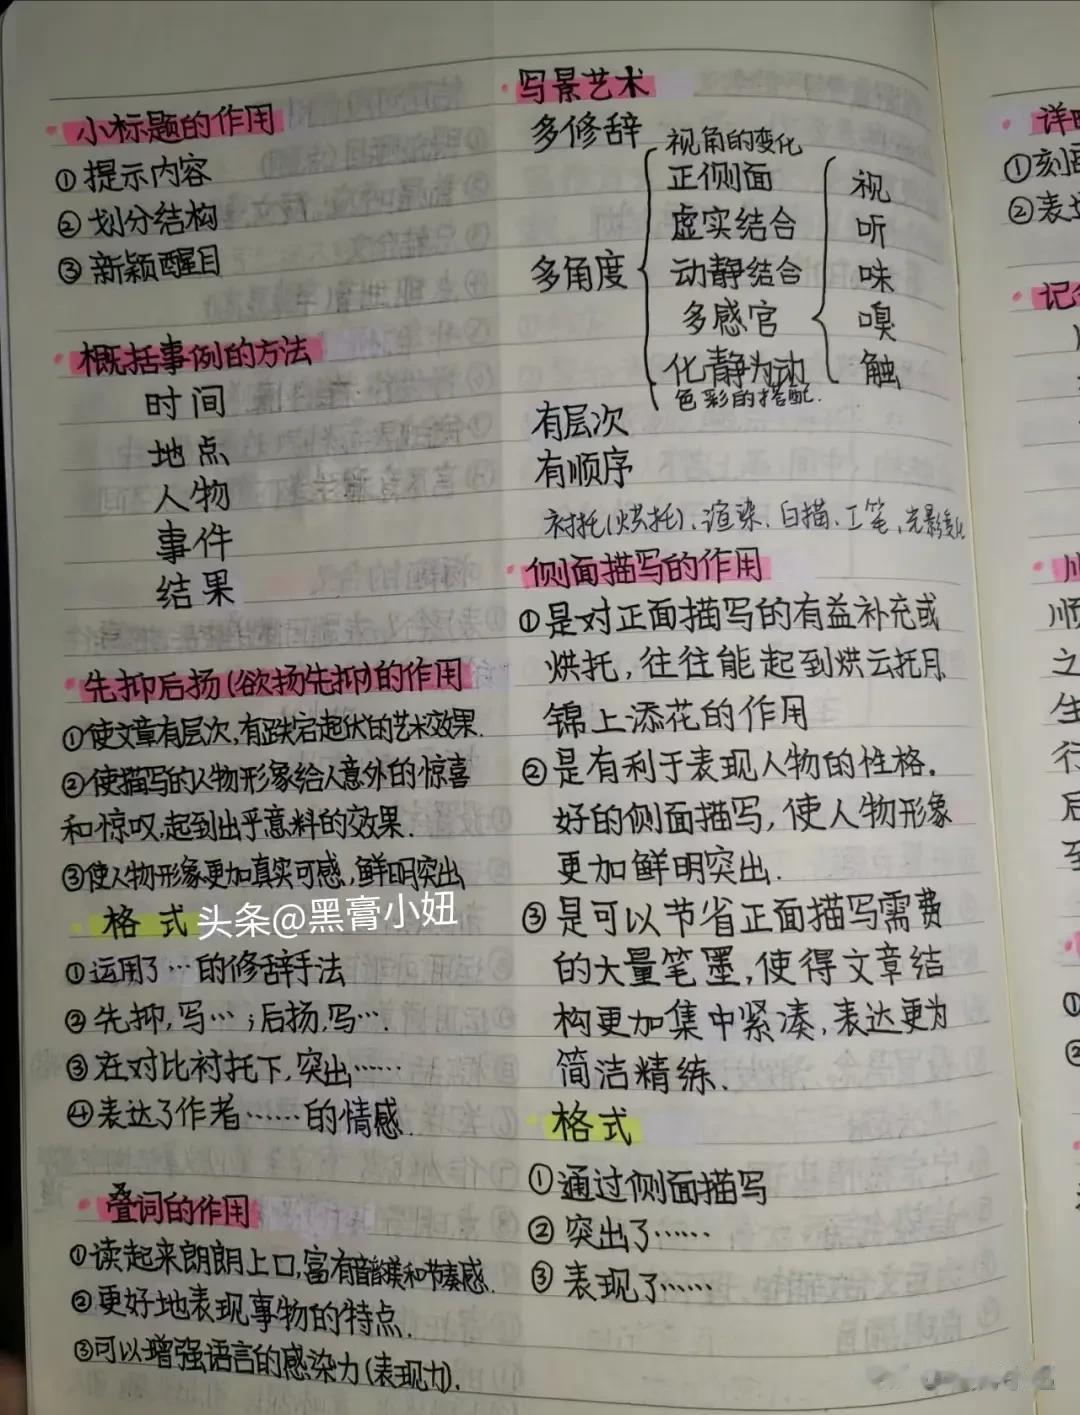 小标题的作用
①提示内容
②划分结构
③新颖醒目
概括事例的方法
时间
地点
人物
事件
结果
先抑后扬(欲扬先抑)的作用
①使文章有层次,有跌宕起伏的艺术效果.
②使描写的人物形象给人意外的惊喜
和惊叹,起到出乎意料的效果.
③使人物形象更加真实可感,鲜明突出
格式
头条@黑膏小妞
①运用了…的修辞手法
②先抑,写…;后扬,写….
③在对比衬托下,突出……
④表达了作者……的情感.
叠词的作用
①读起来朗朗上口,富有音韵美和节奏感.
②更好地表现事物的特点.
③可以增强语言的感染力(表现力).
写景艺术
多修辞
多角度
视角的变化
正侧面
虚实结合
动静结合
多感官
化静为动
色彩的搭配.
视
听
味
嗅
触
有层次
有顺序
衬托(烘托)、渲染、白描、工笔、光影变化
侧面描写的作用
①是对正面描写的有益补充或
烘托,往往能起到烘云托月
锦上添花的作用
②是有利于表现人物的性格.
好的侧面描写,使人物形象
更加鲜明突出.
③是可以节省正面描写需费
的大量笔墨,使得文章结
构更加集中紧凑,表达更为
简洁精练.
格式
①通过侧面描写
②突出了……
③表现了……
详
①刻
②表
记
顺
之
生
行
后
至
①
②